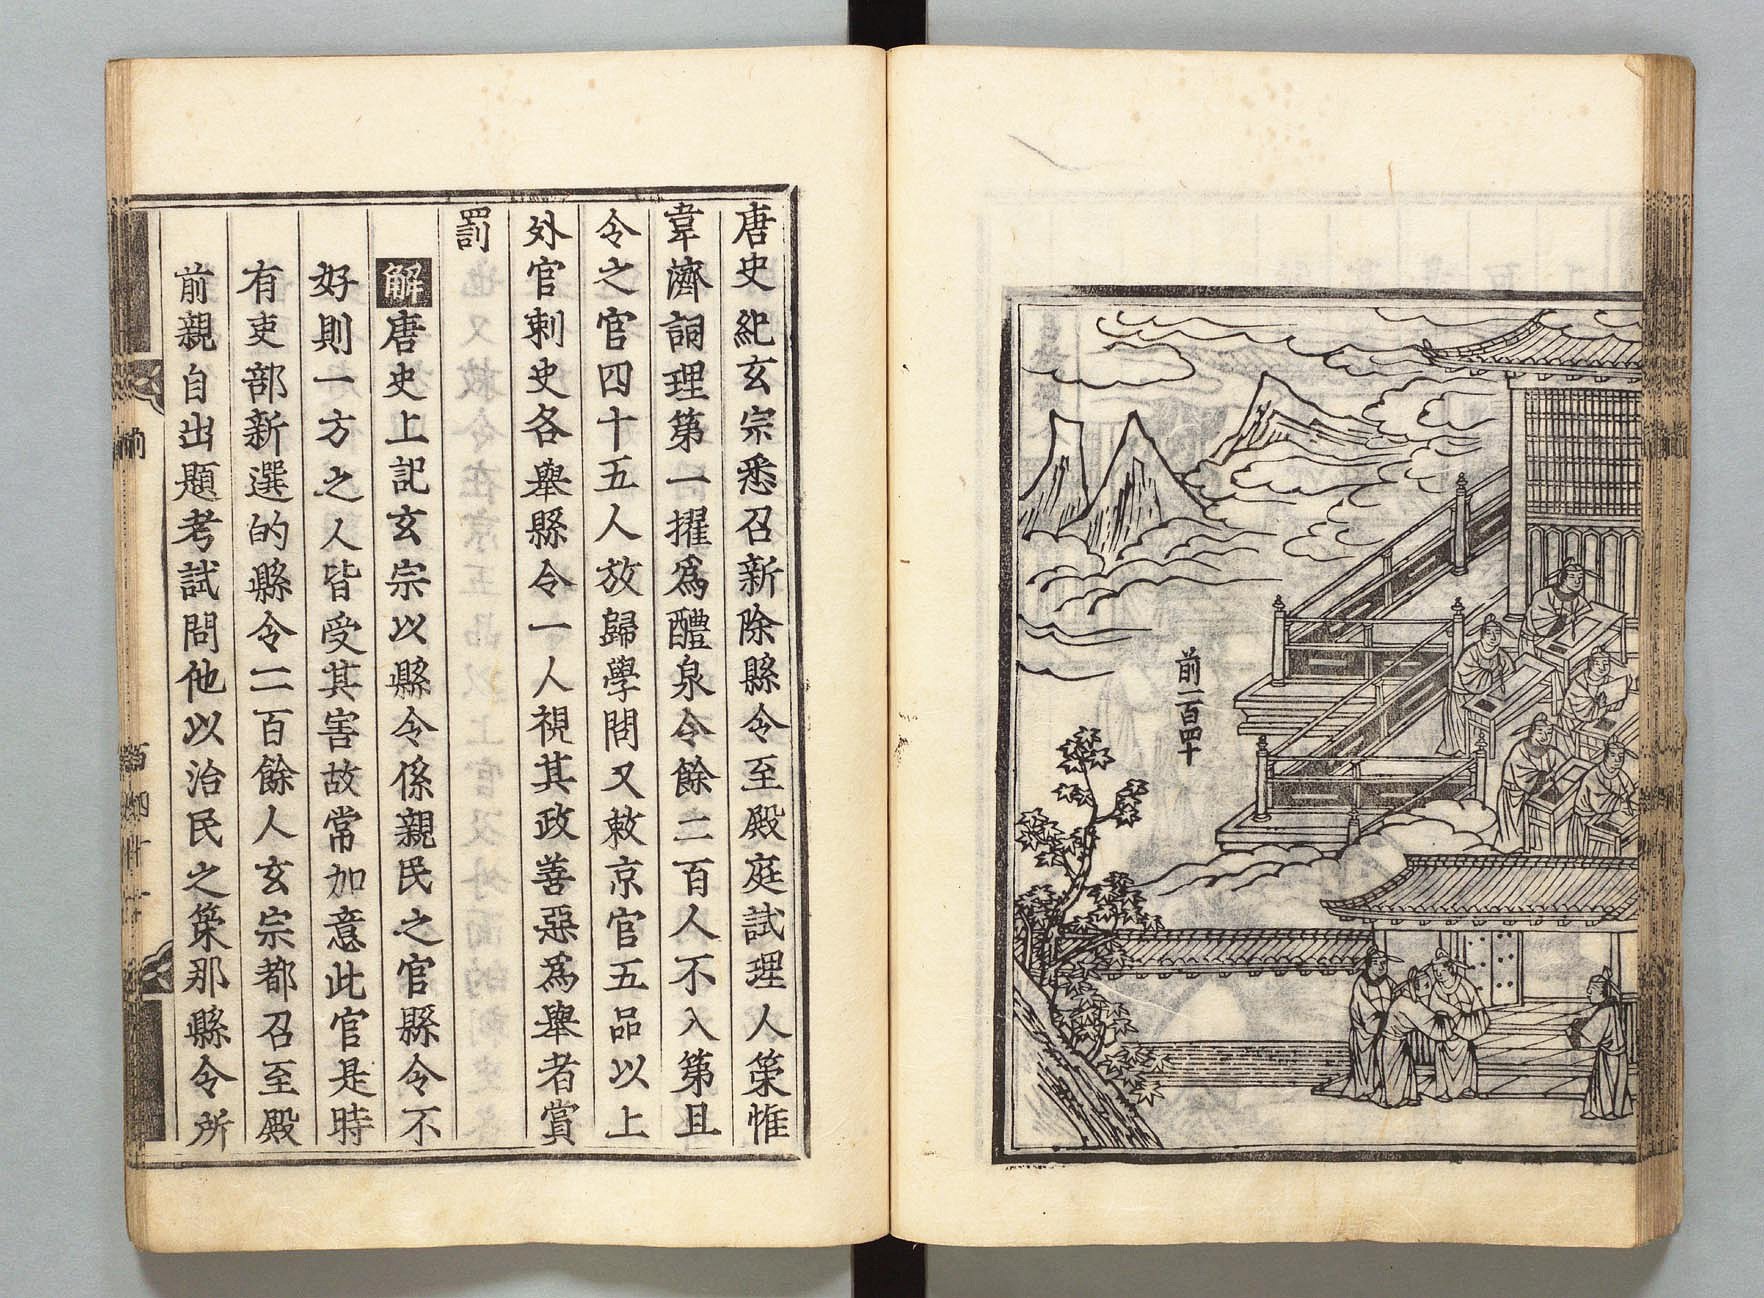 前一百四十
唐史紀玄宗悉召新除縣令至殿庭試理人策惟
韋濟詞理第一擢為醴泉令餘二百人不入第且
令之官四十五人放歸學問又敕京官五品以上
外官刺史各舉縣令一人視其政善惡為舉者賞
罰
解唐史上記玄宗以縣令係親民之官縣令不
好則一方之人皆受其害故常加意此官是時
有吏部新選的縣令二百餘人玄宗都召至殿
前親自出題考試問他以治民之策那縣令所
前